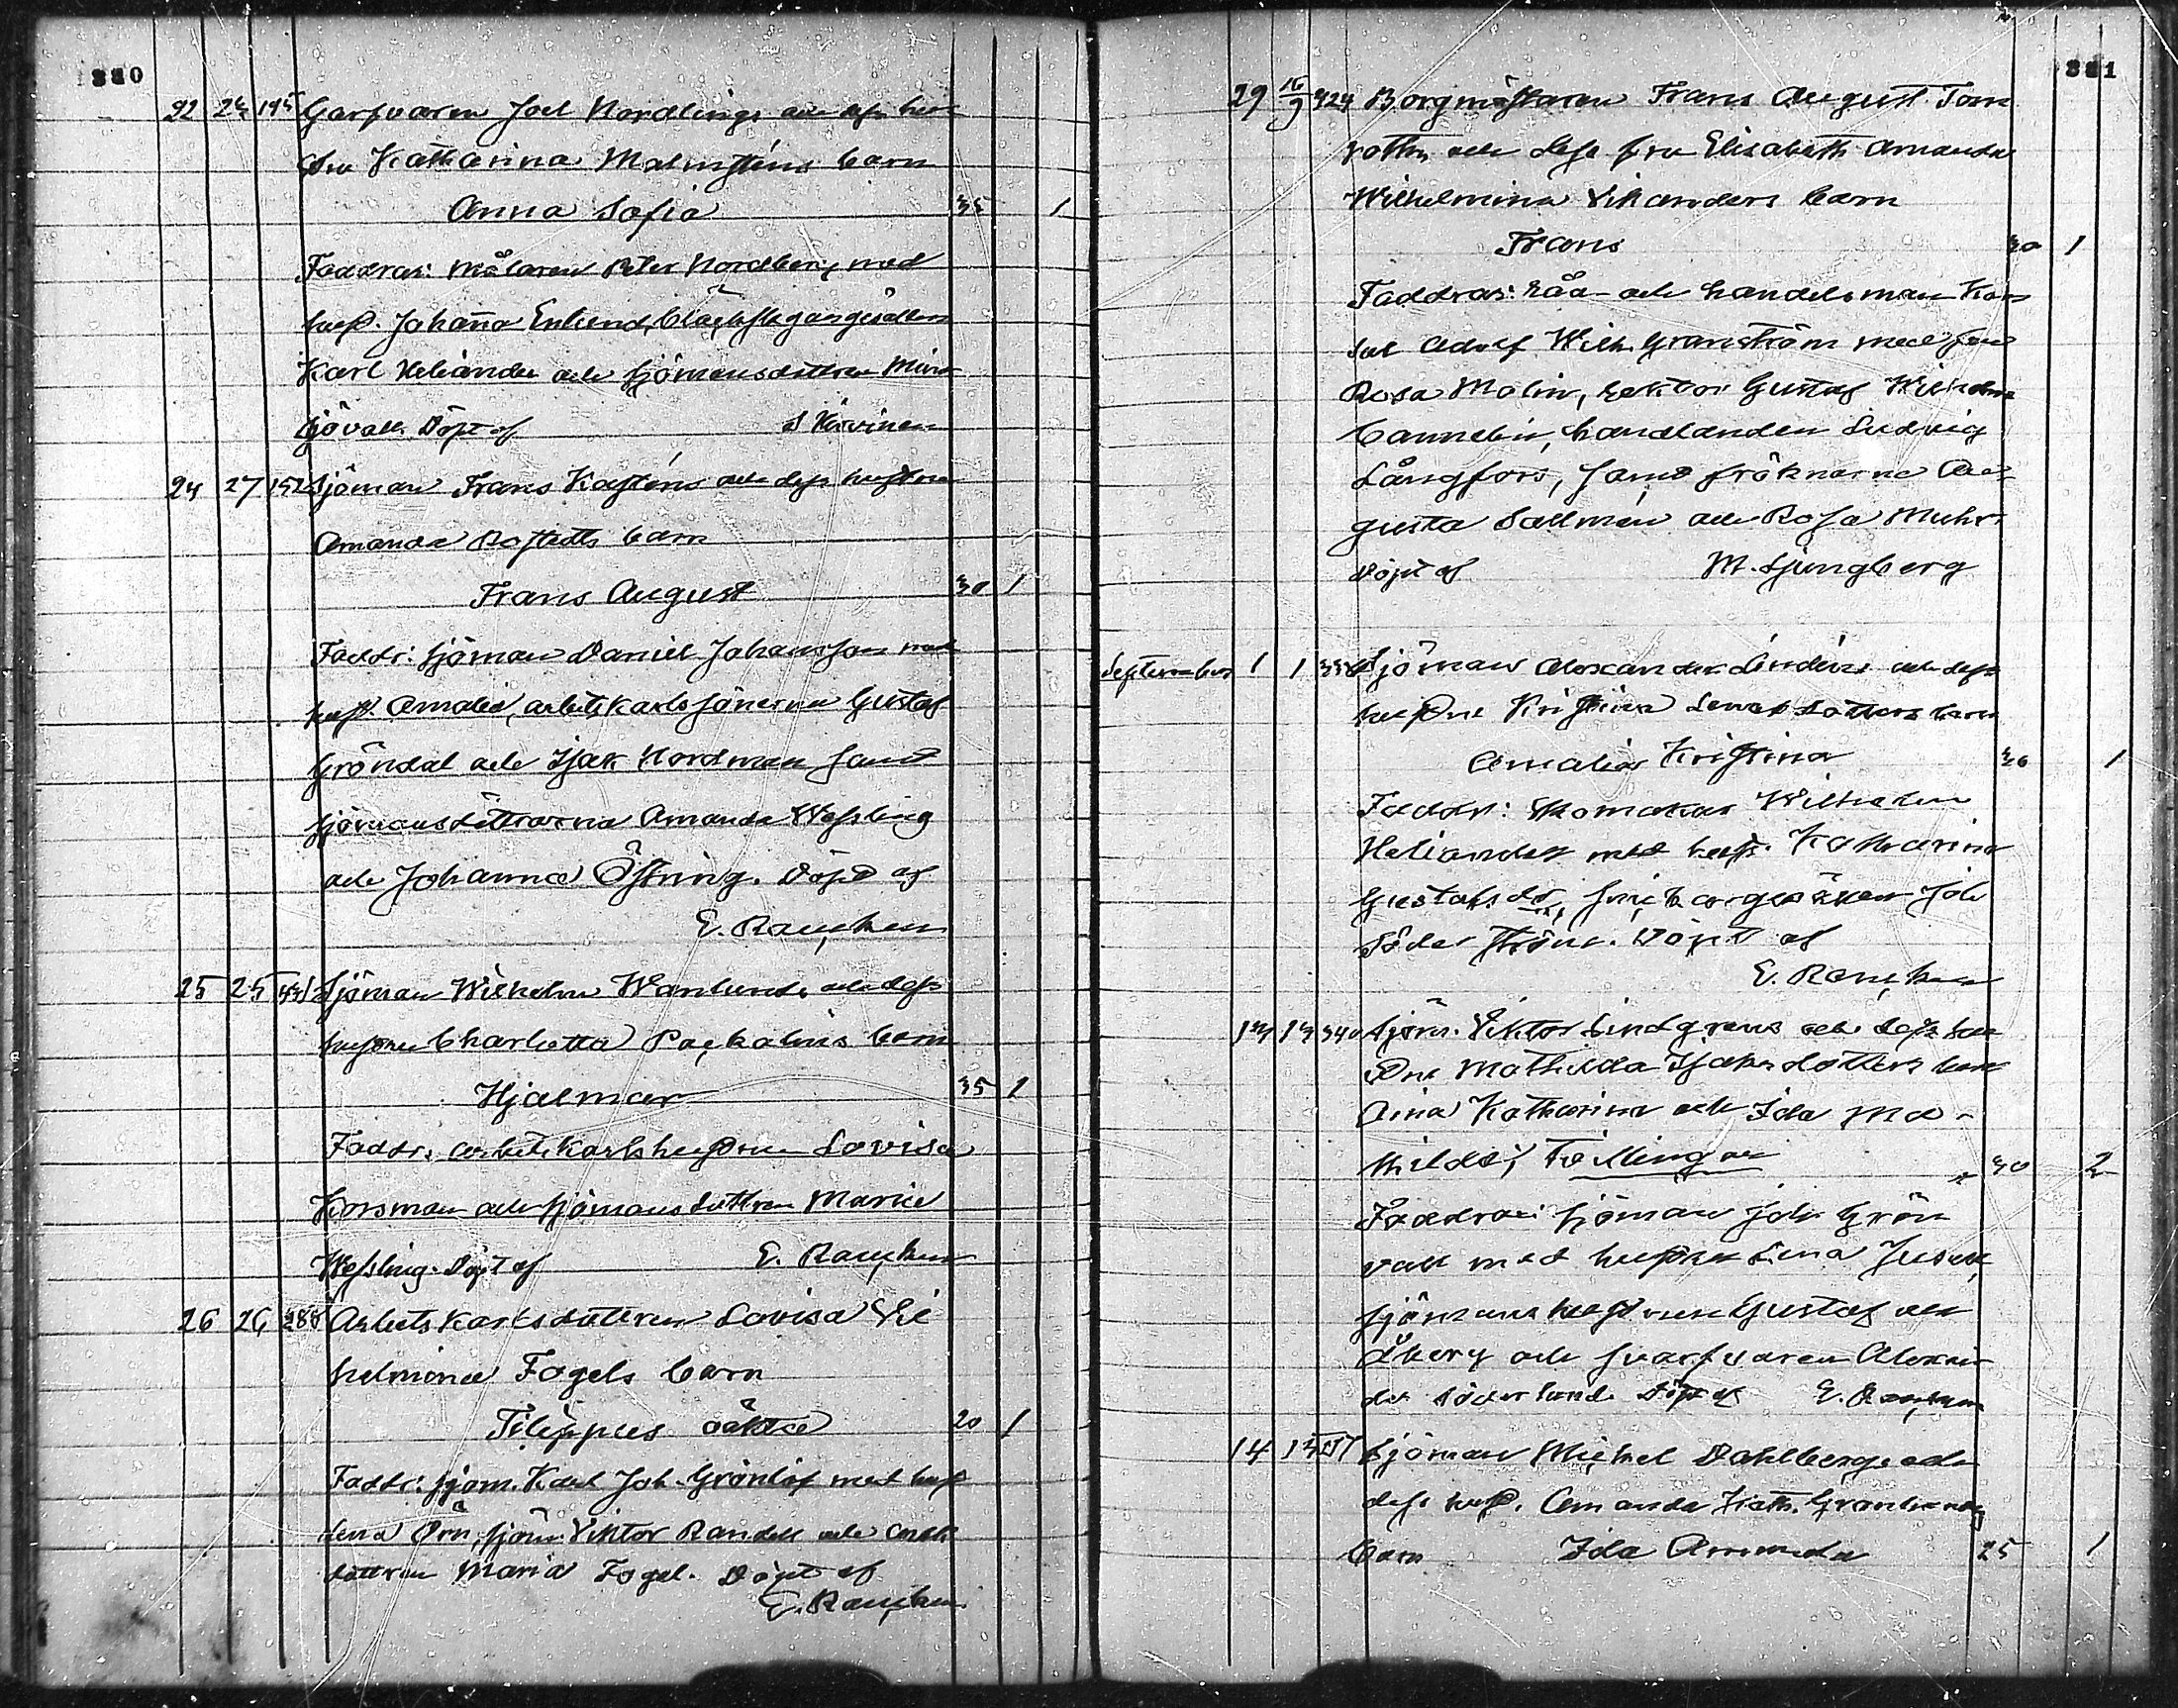 330
22 23 195 Garfvaren Joel Nordlings och dess hu-
stru Katharina Malmsténs barn
Anna Sofia 35 1
Faddrar: målaren Peter Nordberg med
hust. Johanna Enlund,
Karl Heliander och sjömansdottren Mina
Sjövall. Döpt af S Kirvinen
24 27 152 Sjöman Frans Kasténs och dess hustru
Amanda Rostedts barn
Frans August 30 1
Faddr: sjöman Daniel Johansson med
hust. Amalia, arbetskarlssönerna Gustaf
Gröndal och Isak Nordman samt
sjömansdöttrarna Amanda Wessling
och Johanna Östring. Döpt af
E. Rancken
25 25 Sjöman Wilhelm Wanlunds och dess
hustru Charlotta Packaléns barn
Hjalmar 35 1
Faddr. arbetskarlshustrun Lovisa
Korsman och sjömansdottren Maria
Wessling. Döpt af E. Rancken
26 26 288 Arbetskarlsdottren Lovisa Vil
helmina Fogels barn
Filippus oäkta 20 1
Faddr: sjöm. Karl Joh. Grönlöf med hust
Lena Örn, sjöm. Viktor Randell och
dottren Maria Fogel. Döpt af
E. Rancken
331
29 16/9 424 Borgmästaren Frans August Tom
roths och dess fru Elisabeth Amanda
Wilhelmina Vikanders barn
Frans 30 1
Faddrar: Råd- och handelsman Kon
sul Adolf Wilh. Granström med fru
Rosa Molin, rektor Gustaf Wilhelm
Cannelin, handlanden Ludvig
Långfors, samt fröknarne Au-
gusta Sallmén och Rosa Muhr.
Döpt af M. Ljungberg
September 1 1 338 Sjöman Alexander Lindéns och dess
hustru Kristina Lenasdotters barn
Amalia Kristina 30 1
Faddr: Skomakar Wilhelm
Heliander med hust. Katharina
Gustafsdr, Joh
Söderström. Döpt af
E. Rancken
13 13 340 Sjöm. Viktor Lindgrens och dess hu
stru Mathilda Isaksdotters barn
Aina Katharina och Ida Ma-
thilda, Tvillingar 30 2
Faddrar: sjöman Joh. Grön
vall med hustru Lina Jusell,
sjömans hustrun Gustafva
Åberg och svarfvaren Alexan
der Söderlund. Döpt af E. Rancken
14 15 Sjöman Mickel Dahlbergs och
dess hust. Amanda Kath.
barn Ida Amanda 25 1